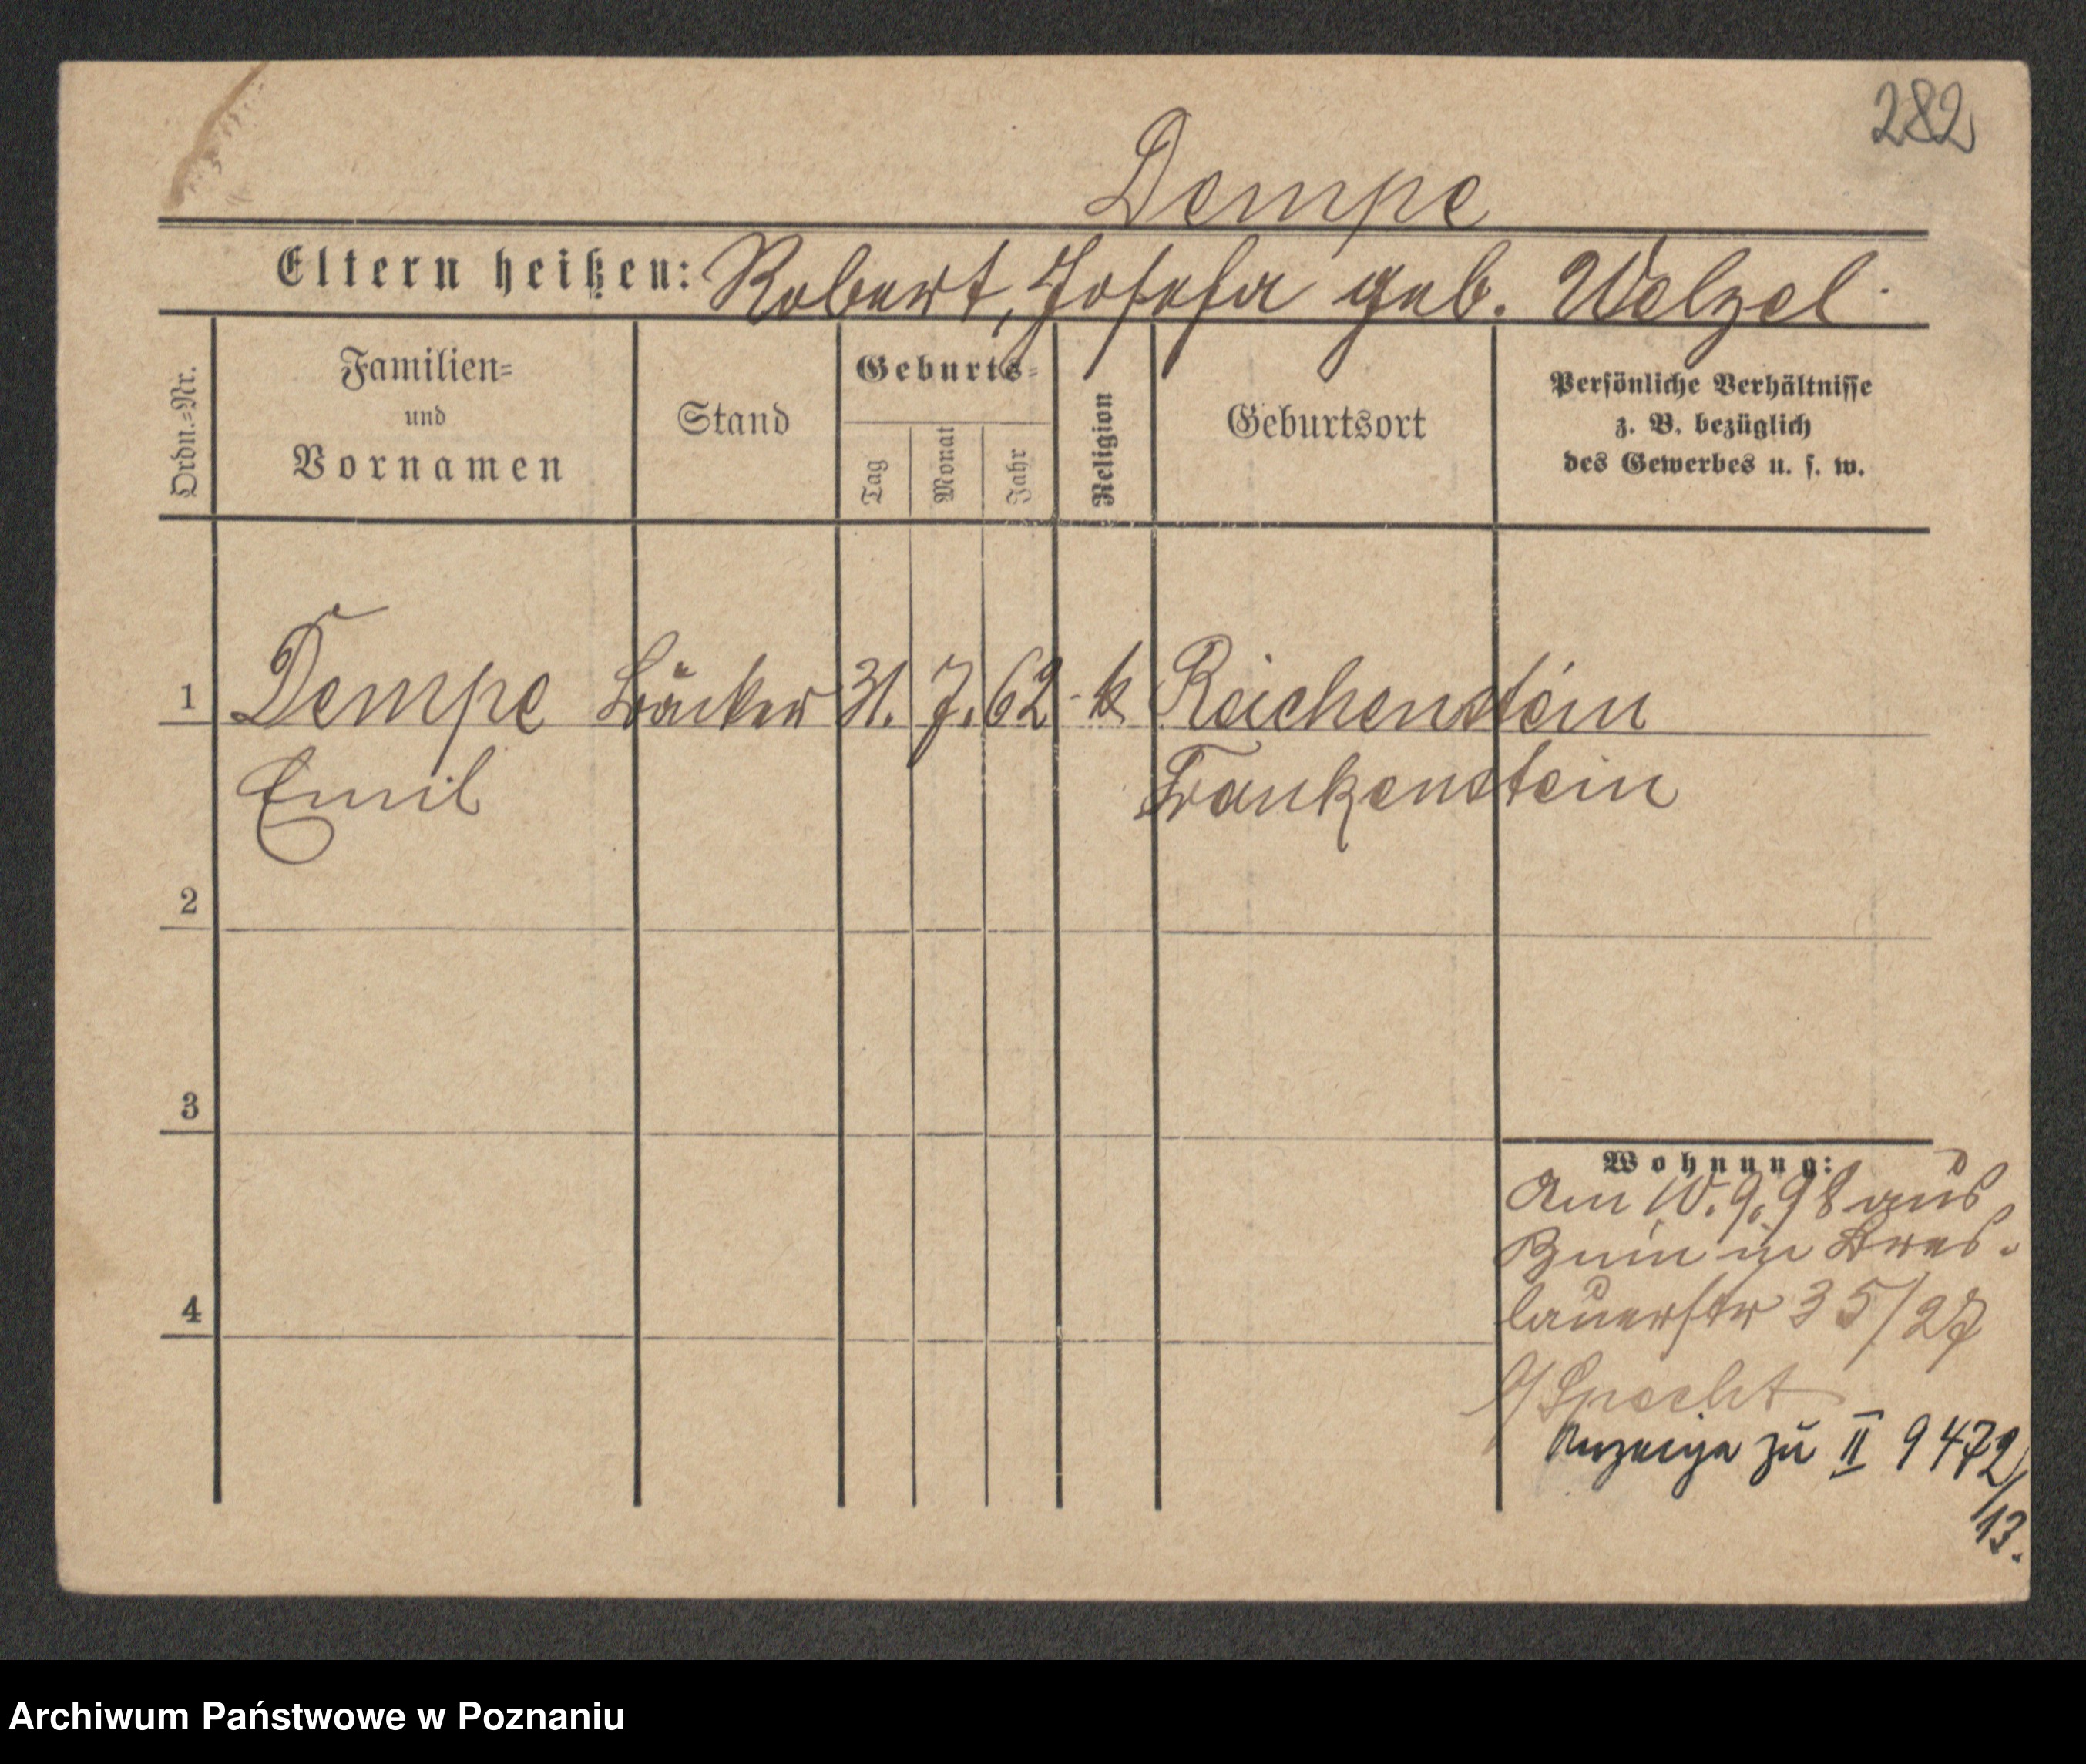 282
Dempe
Eltern heißen: Robert, Josefa geb. Welzel
Ordn.=Nr.
Familien=
und
Vornamen
Stand
Geburts=
Tag
Monat
Jahr
Religion
Geburtsort
Persönliche Verhältnisse
z. B. bezüglich
des Gewerbes u. s. w.
1 Dempe Bäcker 31. 7. 62 k Reichenstein
Emil Frankenstein
2
3
4
Wohnung:
Am 10. 9. 98 aus
Znin in Bres-
lauerstr 35/27
b/ Specht
Anzeige zu II 9472/
13.
Archiwum Państwowe w Poznaniu